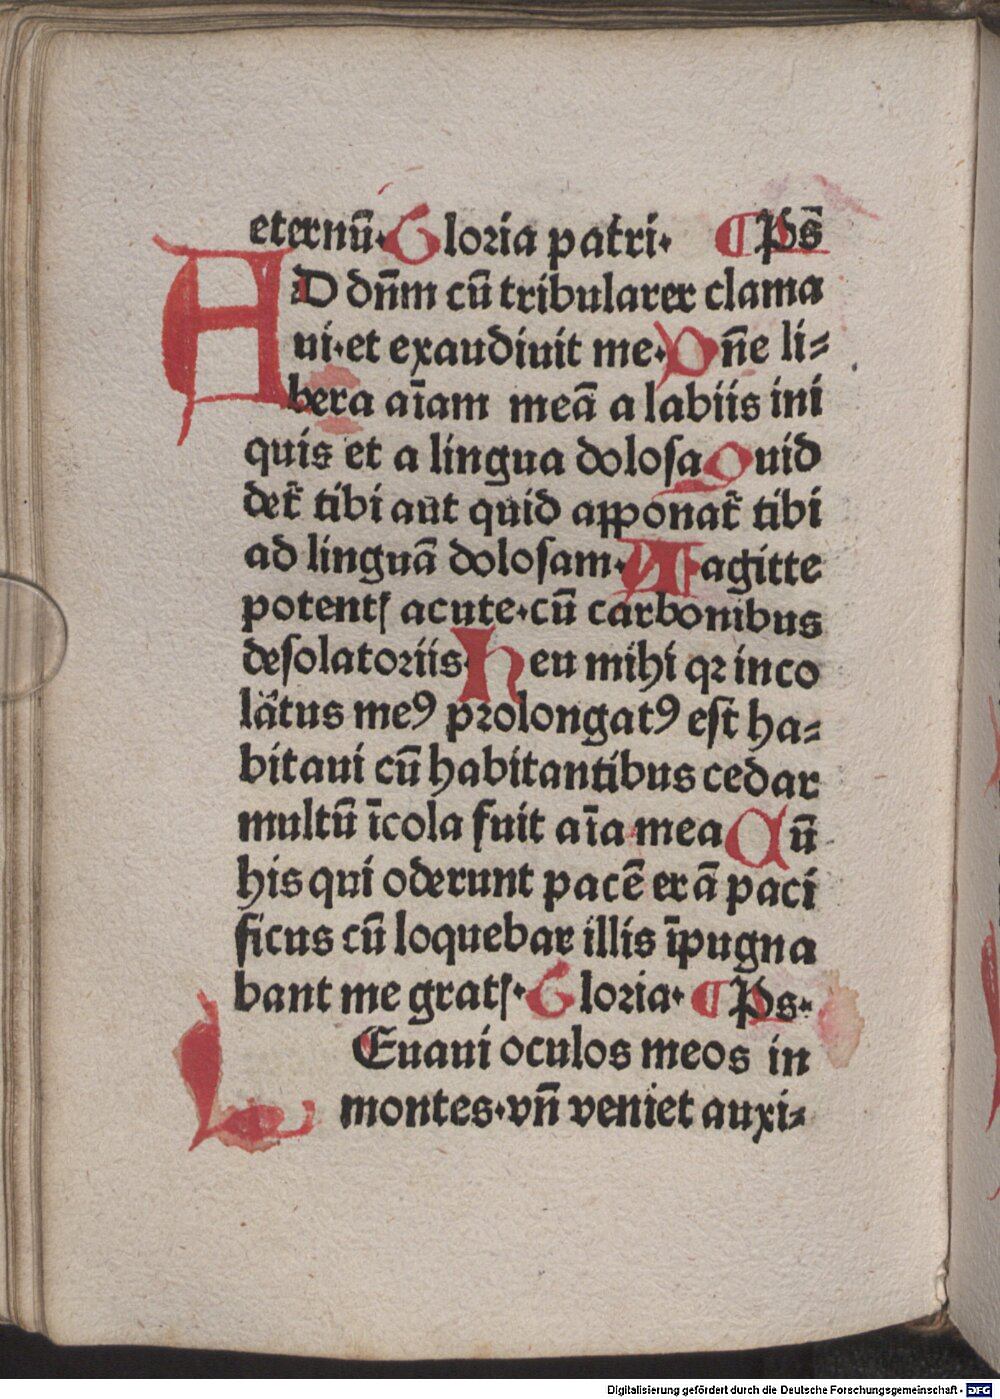 eternū. Gloria patri. ¶ Ps̄
AD dn̄m cū tribularer clama
ui. et exaudiuit me. Dn̄e li⸗
bera aīam meā a labiis ini
quis et a lingua dolosa Quid
det᷑ tibi aut quid apponat᷑ tibi
ad linguā dolosam. Sagitte
potentꝭ acute. cū carbonibus
desolatoriis. Heu mihi qꝛ inco
lātus meꝰ prolongatꝰ est ha⸗
bitaui cū habitantibus cedar
multū īcola fuit aīa mea Cū
his qui oderunt pacē erā paci
ficus cū loquebar illis īpugna
bant me gratꝭ. Gloria. ¶ Ps.
LEuaui oculos meos in
montes. vn̄ veniet auxi⸗
Digitalisierung gefördert durch die Deutsche Forschungsgemeinschaft - DFG